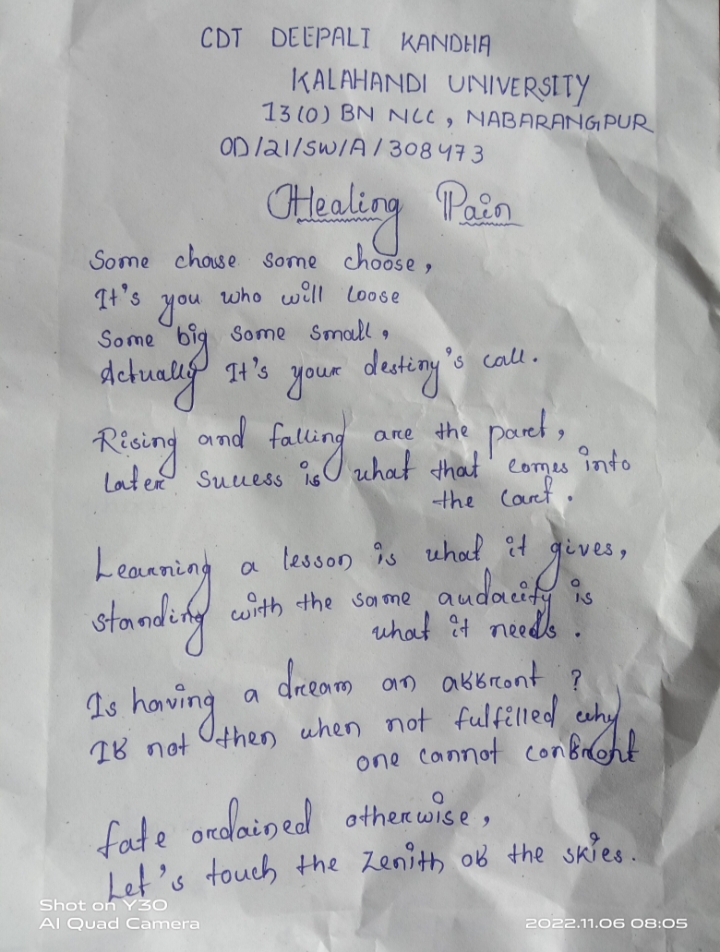 CDT DEEPALI KANDHA
KALAHANDI UNIVERSITY
13(O) BN NCC, NABARANGPUR
OD/21/SW/A/308473
Healing Pain
Some chase some choose,
It's you who will loose
Some big some small,
Actually It's your destiny's call.
Rising and falling are the part,
Later success is what that comes into
the cart.
Learning a lesson is what it gives,
standing with the same audacity is
what it needs.
Is having a dream an affront ?
If not then when not fulfilled why
one cannot confront
fate ordained otherwise,
Let's touch the zenith of the skies.
Shot on Y30
AI Quad Camera
2022.11.06 08:05